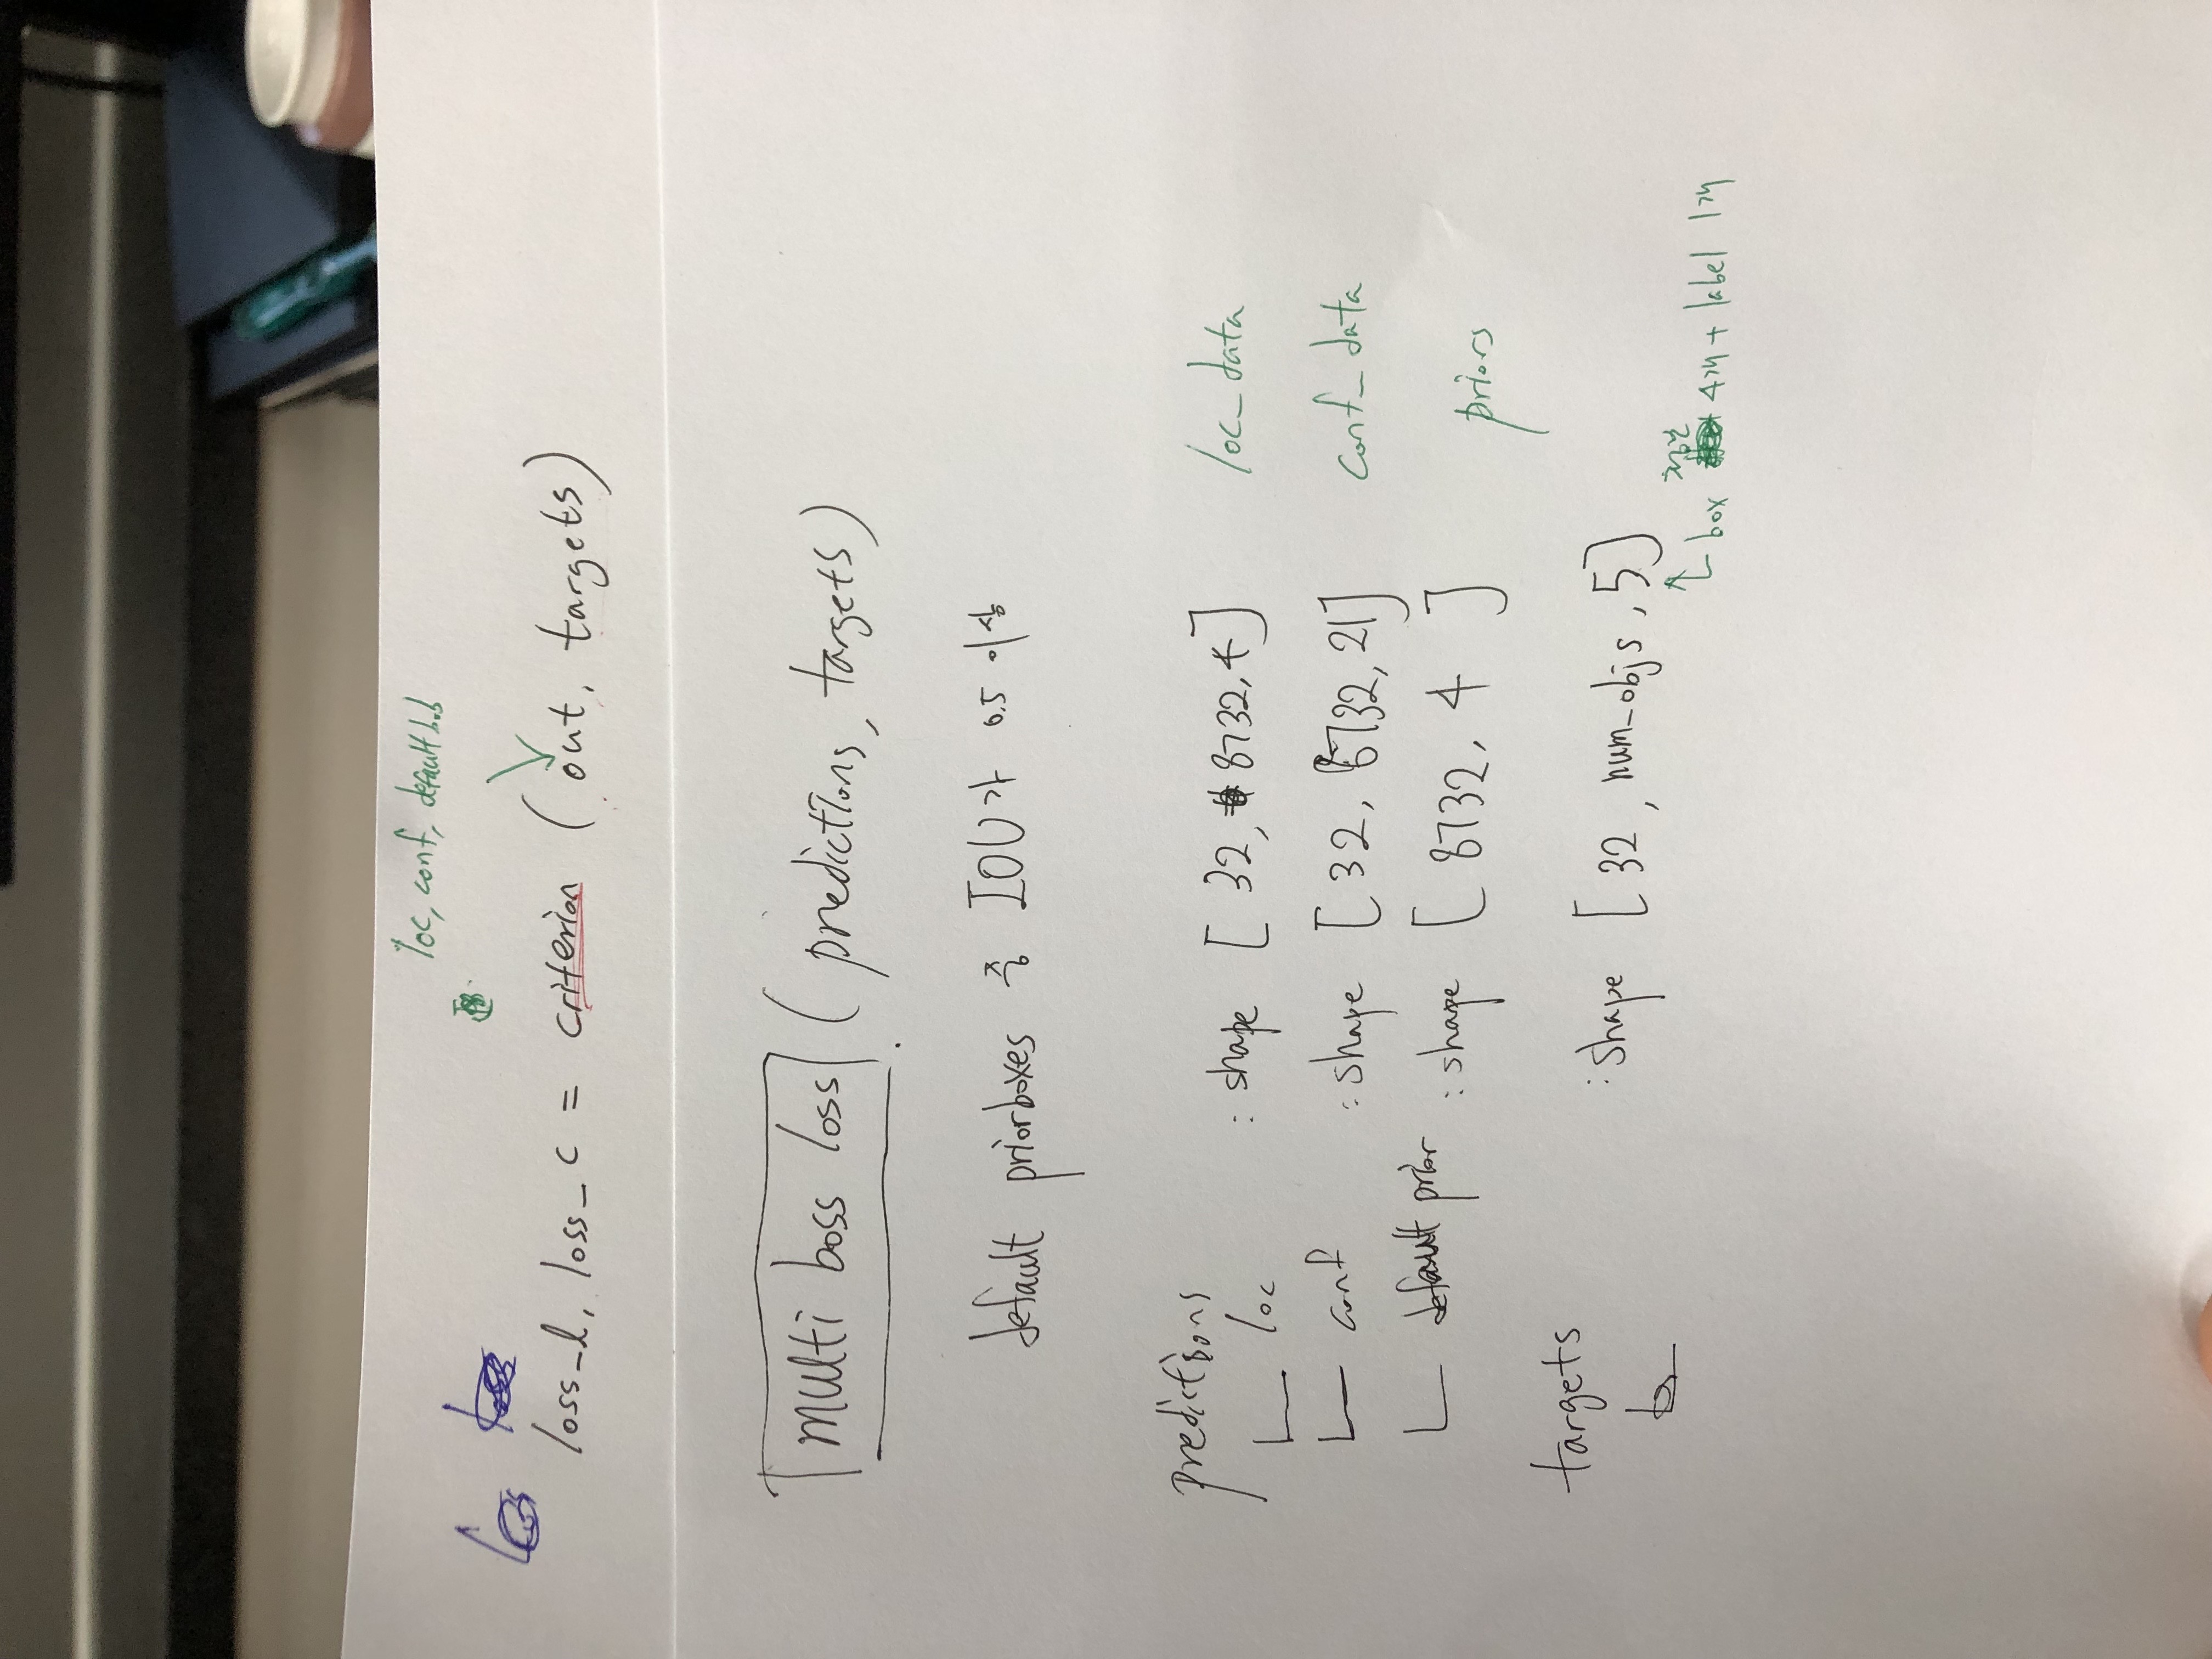 loc, conf, default b.b
loss_l, loss_c = criterion (out, targets)
multi boss loss (predictions, targets)
default priorboxes 중 IOU가 0.5 이상
predictions
loc : shape [32, 8732, 4] loc_data
conf : shape [32, 8732, 21] conf_data
default prior : shape [8732, 4] priors
targets : shape [32, num_objs, 5]
box 좌표 4개 + label 1개